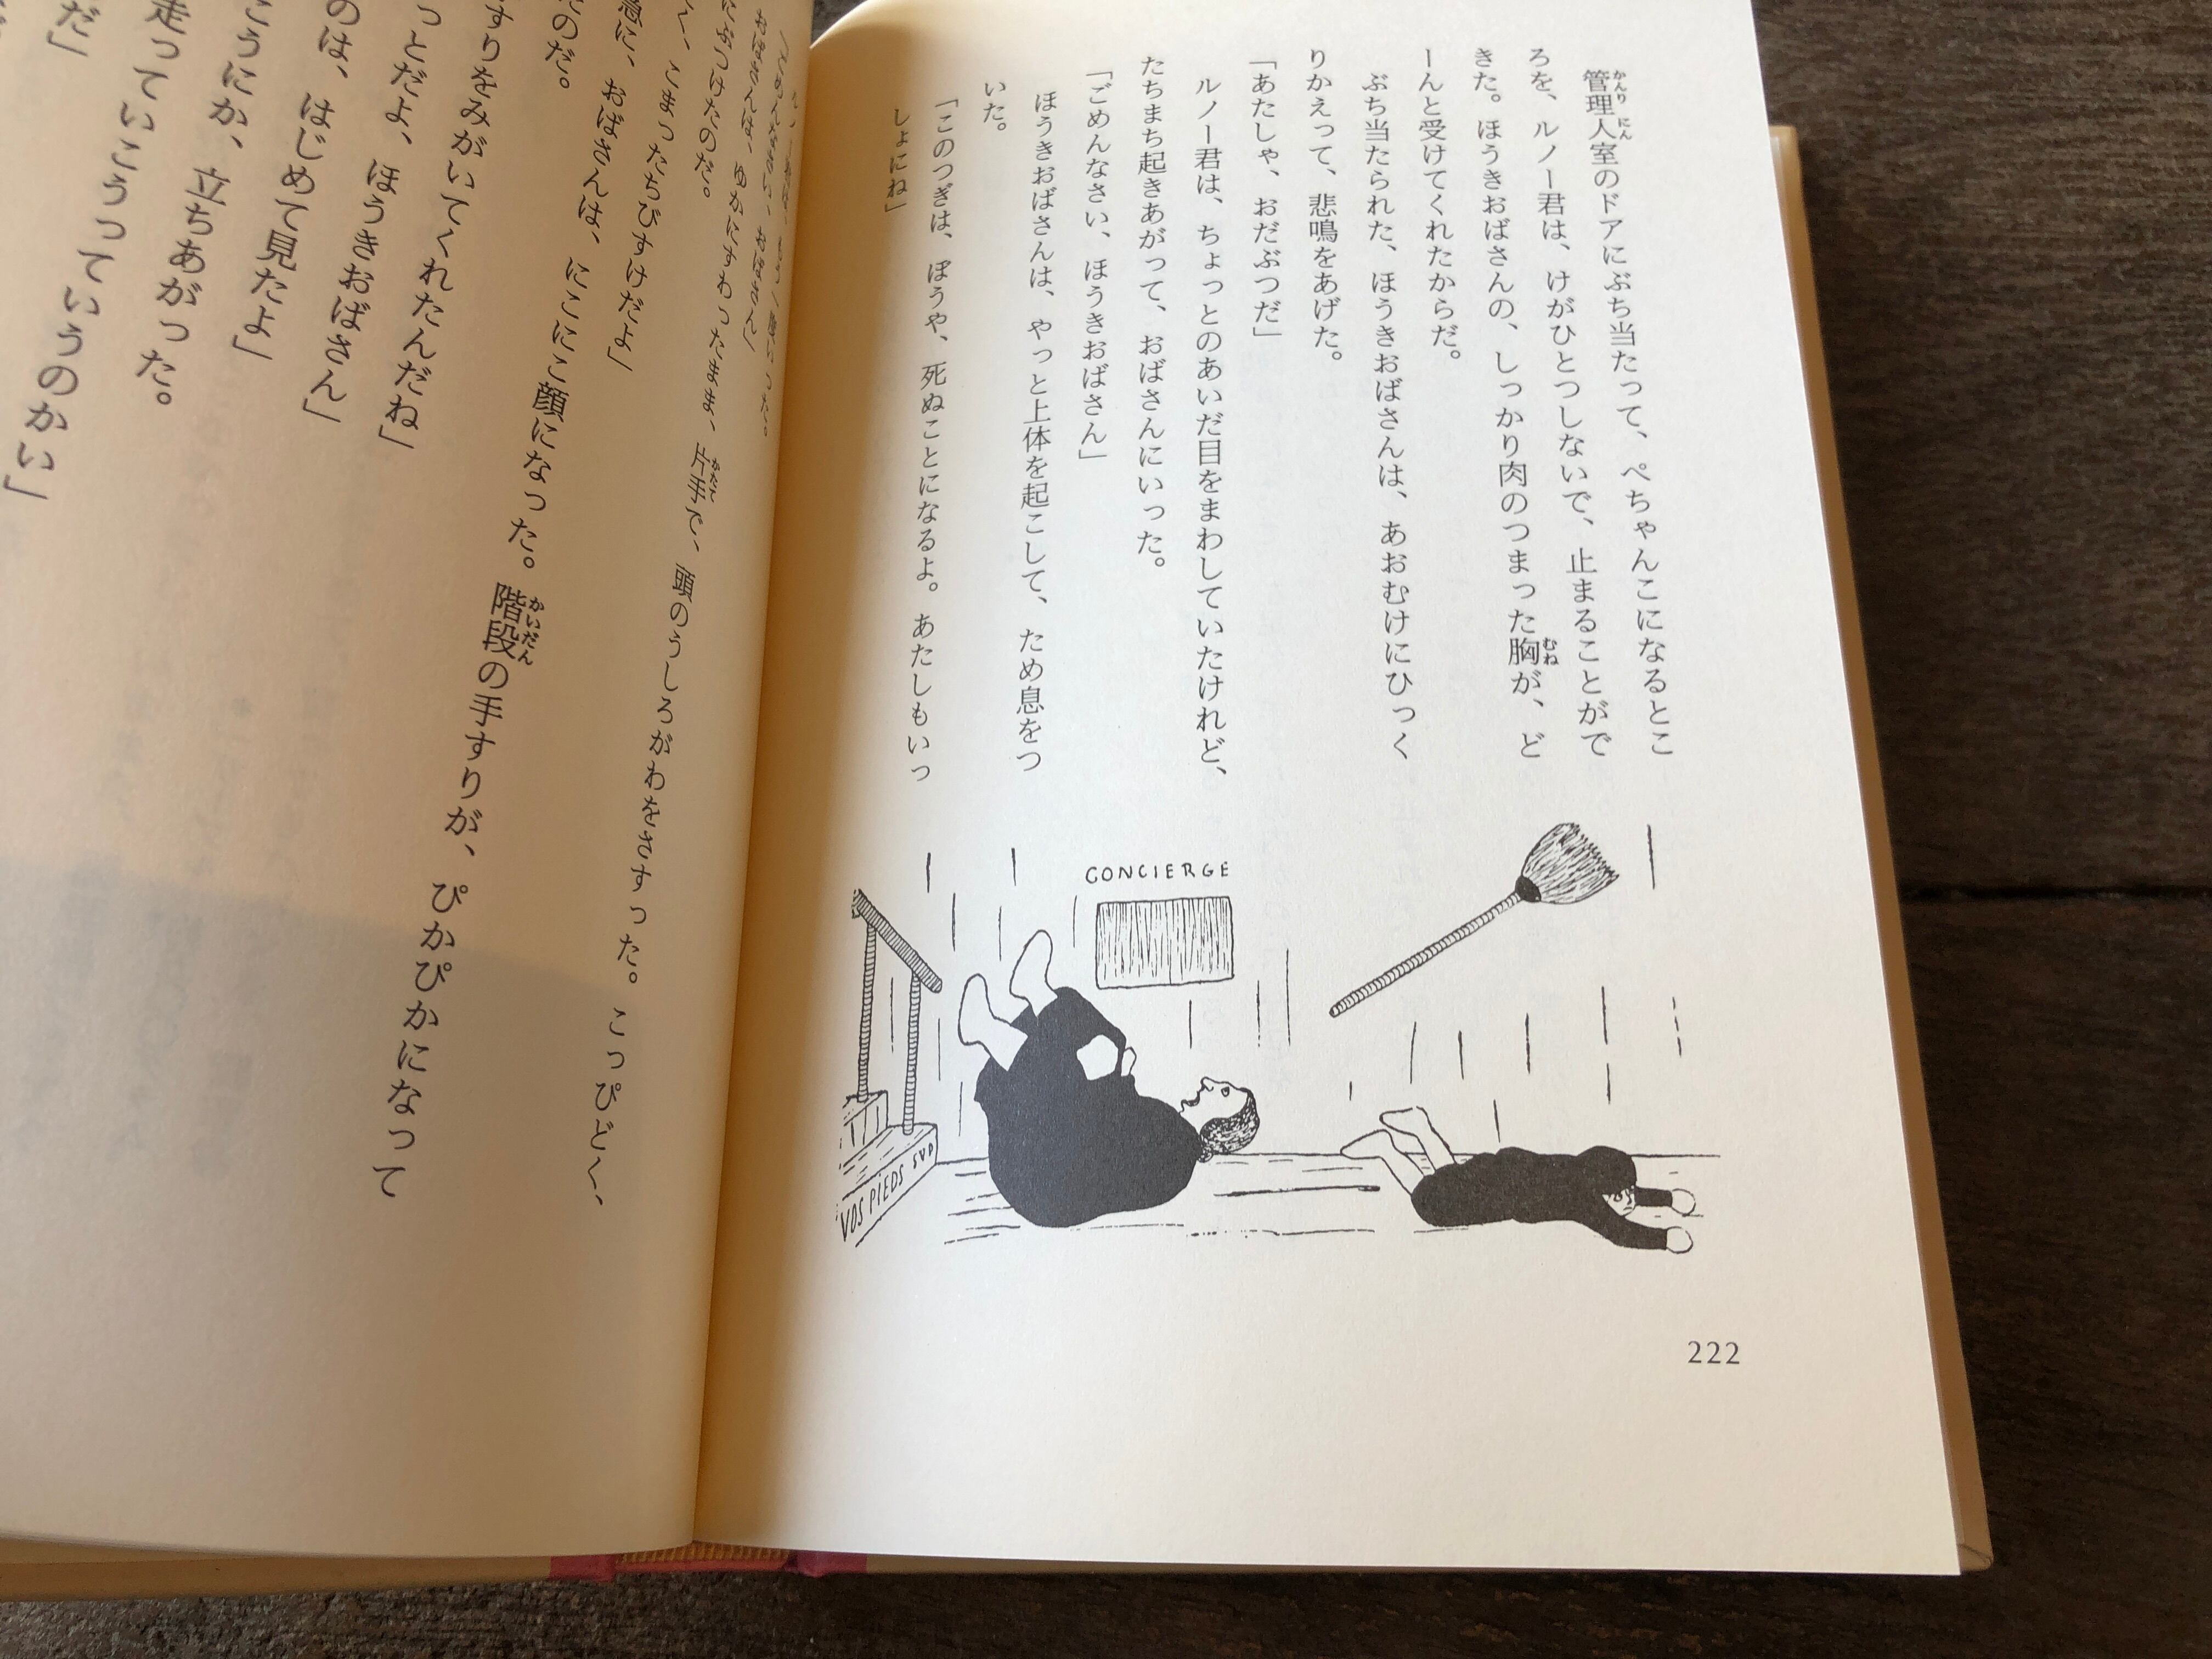 管理人室のドアにぶち当たって、ぺちゃんこになるとこ
ろを、ルノー君は、けがひとつしないで、止まることがで
きた。ほうきおばさんの、しっかり肉のつまった胸が、ど
ーんと受けてくれたからだ。
ぶち当たられた、ほうきおばさんは、あおむけにひっく
りかえって、悲鳴をあげた。
「あたしゃ、おだぶつだ」
ルノー君は、ちょっとのあいだ目をまわしていたけれど、
たちまち起きあがって、おばさんにいった。
「ごめんなさい、ほうきおばさん」
ほうきおばさんは、やっと上体を起こして、ため息をつ
いた。
「このつぎは、ぼうや、死ぬことになるよ。あたしもいっ
しょにね」
CONCIERGE
VOS PIEDS SVP
222
「ごめんなさい、おばさん」
おばさんは、ゆかにすわったまま、片手で、頭のうしろがわをさすった。こっぴどく、
にぶつけたのだ。
く、こまったちびすけだよ」
急に、おばさんは、にこにこ顔になった。階段の手すりが、ぴかぴかになって
のだ。
すりをみがいてくれたんだね」
っとだよ、ほうきおばさん」
のは、はじめて見たよ」
こうにか、立ちあがった。
走っていこうっていうのかい」
だ」